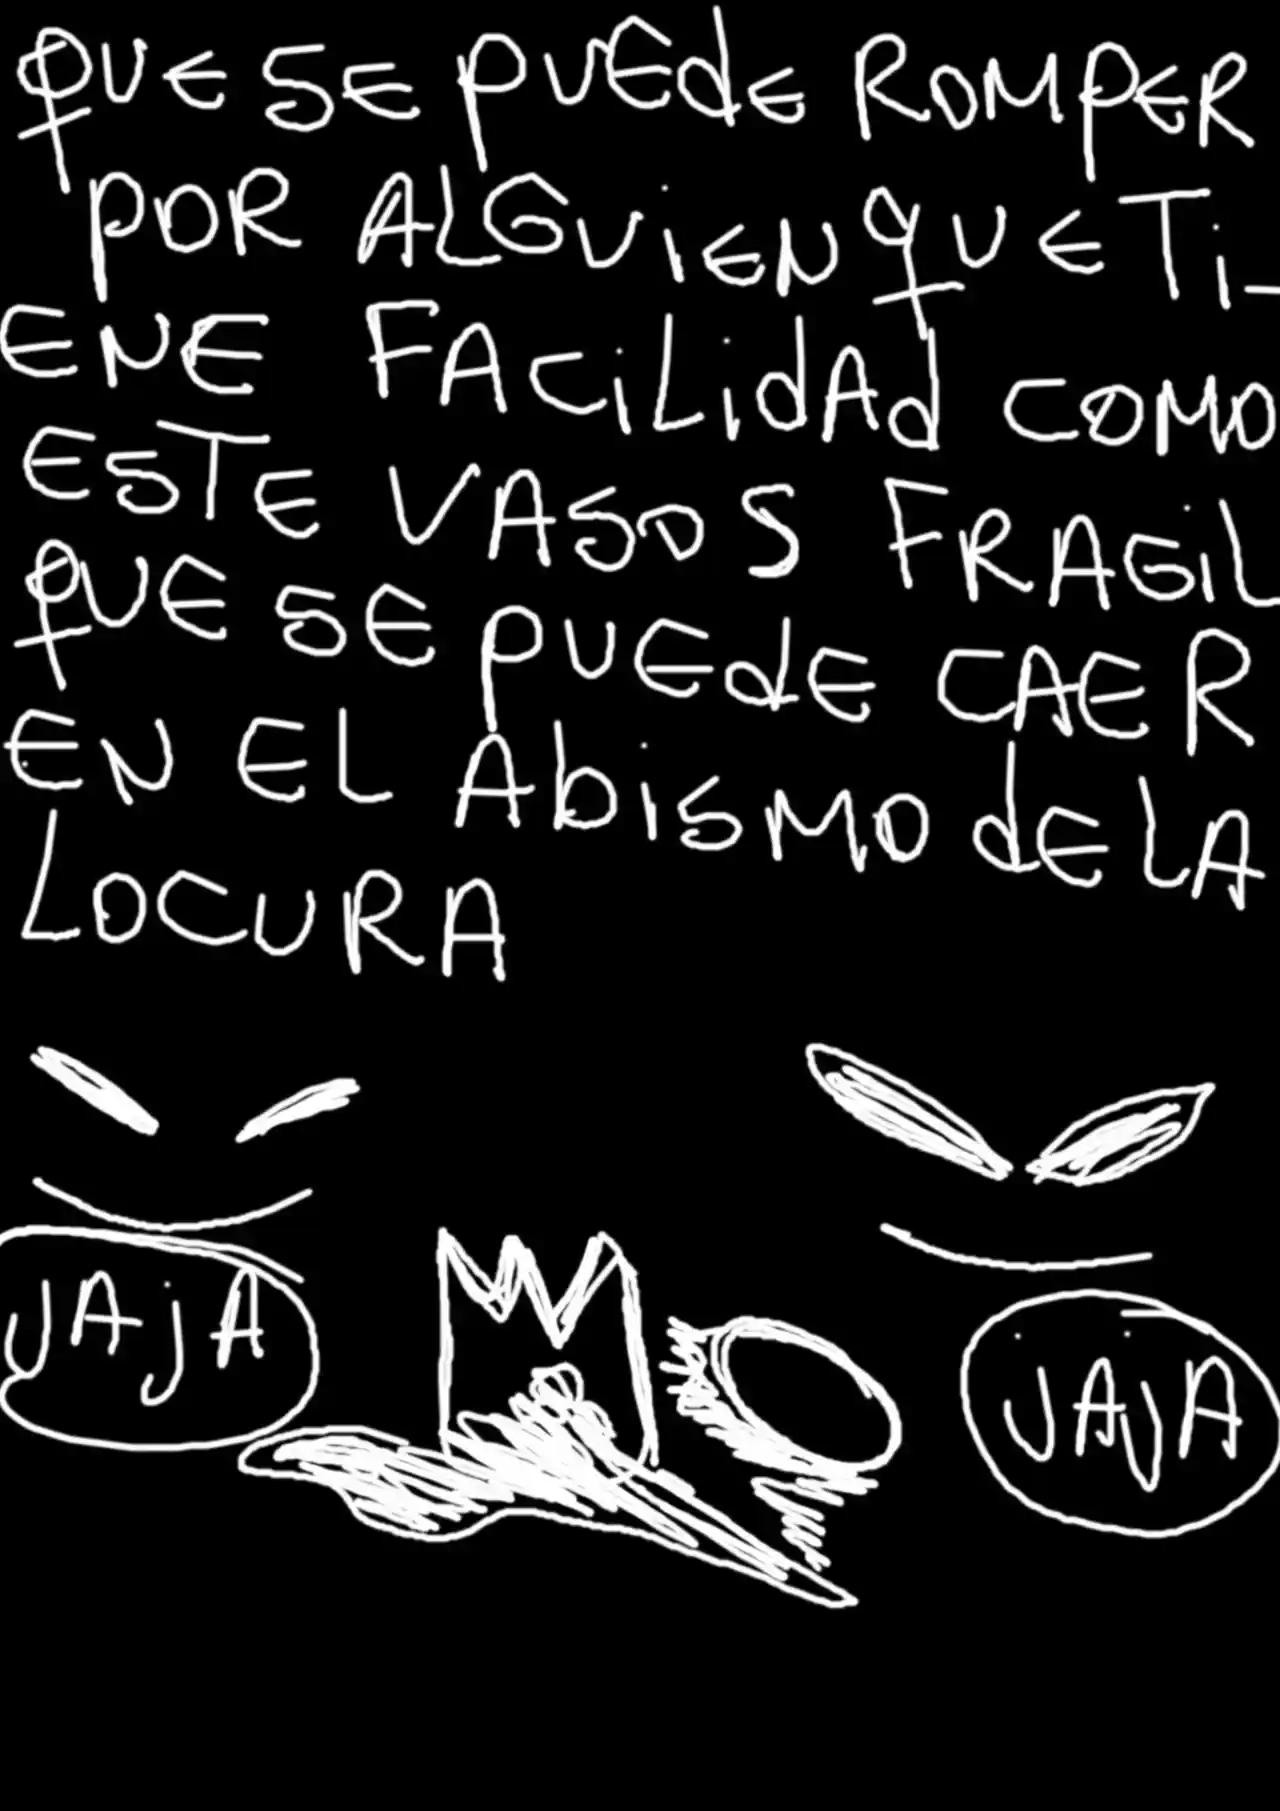 QUE SE PUEdE ROMPER
POR ALGUiEN QUE Ti-
ENE FACiLidAd COMO
ESTE VASOS FRAGiL
QUE SE PUEdE CAER
EN EL AbiSMO dE LA
LOCURA
JAjA
jAjA